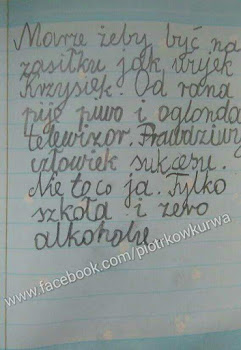 Marze żeby być na
zasiłku jak wujek
Krzysiek. Od rana
pije piwo i oglonda
telewizor. Prawdziwy
człowiek sukcesu.
Nie to co ja. Tylko
szkoła i zero
alkoholu.
www.facebook.com/piotrkowkurwa